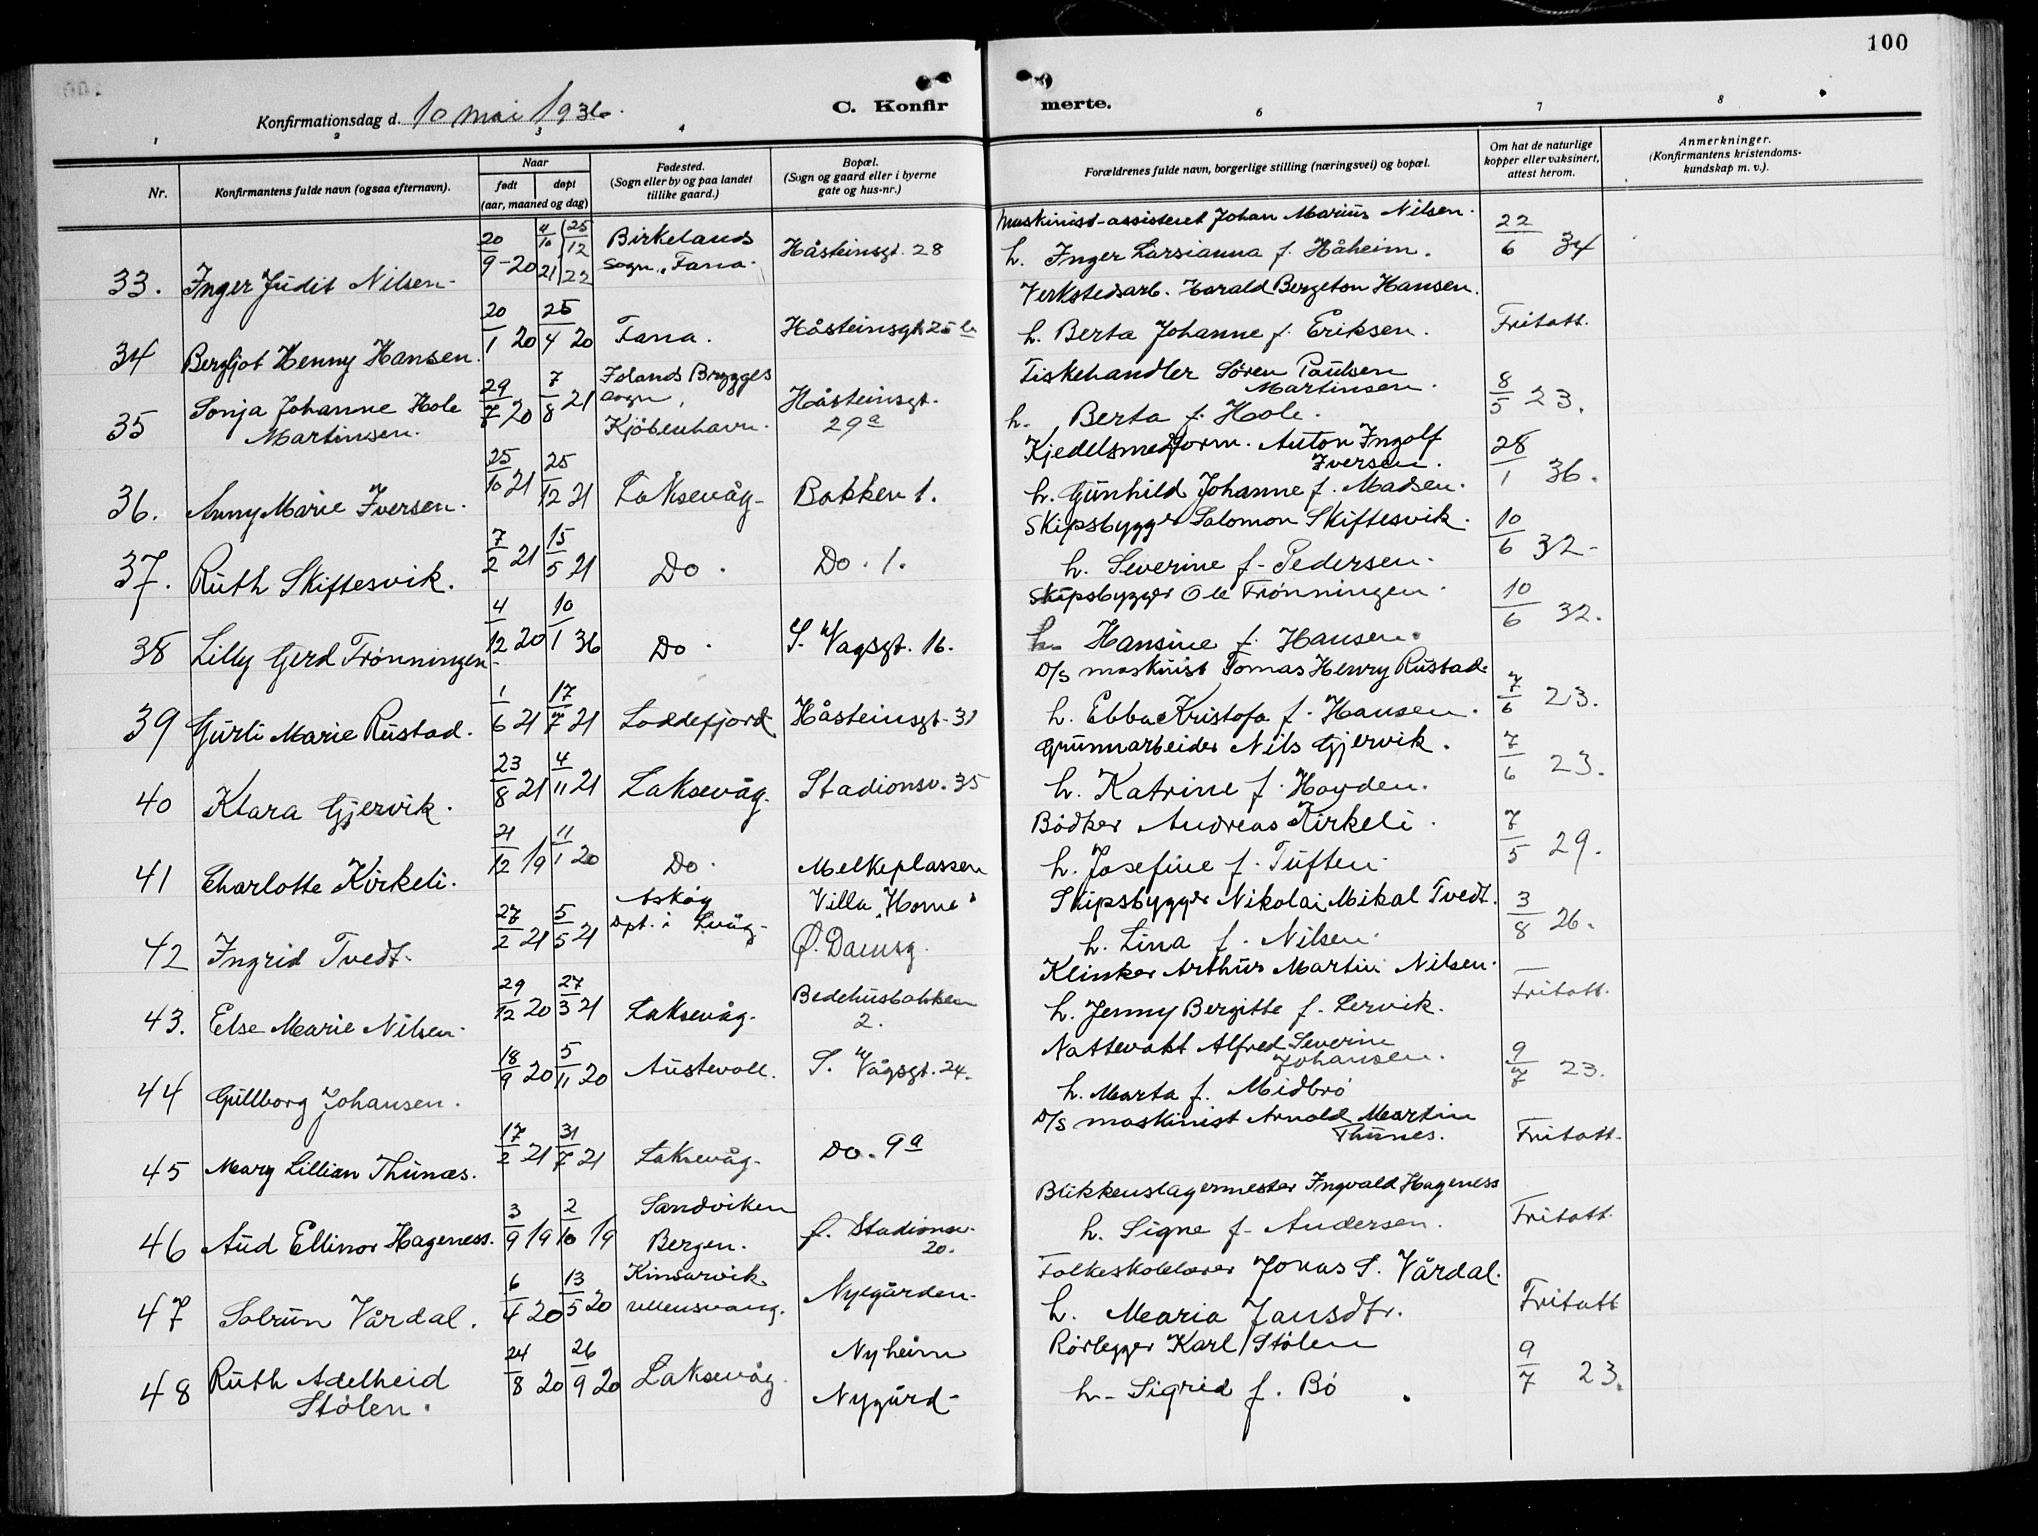 100
Konfirmationsdag d. 10 mai 1936.
C. Konfirmerte.
1 2 3 4 6 7 8
Nr.
Konfirmantens fulde navn (ogsaa efternavn).
Naar
født døpt
(aar, maaned og dag)
Fødested.
(Sogn eller by og paa landet
tillike gaard.)
Bopæl.
(Sogn og gaard eller i byerne
gate og hus-nr.)
Forældrenes fulde navn, borgerlige stilling (næringsvei) og bopæl.
Om hat de naturlige
kopper eller vaksinert,
attest herom.
Anmerkninger.
(Konfirmantens kristendoms-
kundskap m. v.).
33. Inger Judit Nilsen. 20/9-20 4/10 21 25/12 22 Birkelands sogn, Fana. Håsteinsgt. 28
Maskinist-assistent Johan Marius Nilsen.
h. Inger Larsianna f. Håheim. 22/6 34
34 Bergljot Henny Hansen. 20/1 20 25/4 20 Fana. Håsteinsgt 25 b
Verkstedsarb. Harald Bergeton Hansen.
h. Berta Johanne f. Eriksen. Fritatt.
35 Sonja Johanne Hole Martinsen. 29/7 20 7/8 21 Islands Brygges sogn, Kjöbenhavn. Håsteinsgt. 29a
Fiskehandler Sören Paulsen Martinsen.
h. Berta f. Hole. 8/5 23.
36. Anny Marie Iversen. 25/10 21 25/12 21 Laksevåg- Bakken 1.
Kjedelsmedform. Anton Ingolf Iversen.
h. Gunhild Johanne f. Madsen. 28/1 36.
37. Ruth Skiftesvik. 7/2 21 15/5 21 Do. Do. 1.
Skipsbygger Salomon Skiftesvik.
h. Severine f. Pedersen. 10/6 32-
38 Lilly Gerd Trönningen 4/12 20 10/1 36 Do. S. Vagsgt. 16.
Skipsbygger Ole Trönningen.
h. Hansine f. Hansen. 10/6 32.
39 Gurli Marie Rustad. 1/6 21 17/7 21 Loddefjord Håsteinsgt. 31
D/s maskinist Tomas Henry Rustad.
h. Ebba Kristofa f. Hansen. 7/6 23.
40 Klara Gjervik. 23/8 21 4/11 21 Laksevåg. Stadionsv. 35
Grunnarbeider Nils Gjervik.
h. Katrine f. Hayden. 7/6 23.
41 Charlotte Kirkeli. 21/12 19 11/1 20 Do. Melkeplassen
Bödker Andreas Kirkeli.
h. Josefine f. Tuften. 7/5 29.
42 Ingrid Tvedt. 27/2 21 5/5 21 Askøy Dpt. i Lvåg- Villa "Home" Ø. Damsg.
Skipsbygger Nikolai Mikal Tvedt.
h. Lina f. Nilsen. 3/8 26.
43. Else Marie Nilsen. 29/12 20 27/3 21 Laksevåg. Bedehusbakken 2.
Klinker Arthur Martin Nilsen.
h. Jenny Bergitte f. Lervik. Fritatt.
44 Gullborg Johansen. 18/9 20 5/11 20 Austevoll. S. Vågsgt. 24.
Nattevakt Alfred Severin Johansen.
h. Marta f. Midbrö 9/7 23.
45 Mary Lillian Thunæs. 17/2 21 31/7 21 Laksevåg- Do. 9a
D/s maskinist Arnold Martin Thunes. Fritatt.
46 Aud Ellinor Hageness. 3/9 19 2/10 19 Sandviken Bergen. Ø. Stadionsv. 20.
Blikkenslagermester Ingvald Hageness
h. Signe f. Andersen. Fritatt.
47 Solrun Vårdal. 6/4 20 13/5 20 Kinsarvik Ullensvang. Nygården.
Folkeskolelærer Jonas S. Vårdal.
h. Maria Jansdtr. Fritatt
48 Ruth Adelheid Stölen. 24/8 20 26/9 20 Laksevåg. Nyheim Nygård-
Rörlegger Karl Stölen
h. Sigrid f. Bö. 9/7 23.